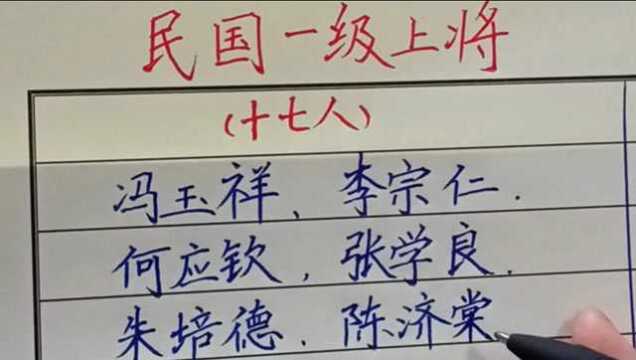 民国一级上将
(十七人)
冯玉祥、李宗仁.
何应钦，张学良.
朱培德.陈济棠